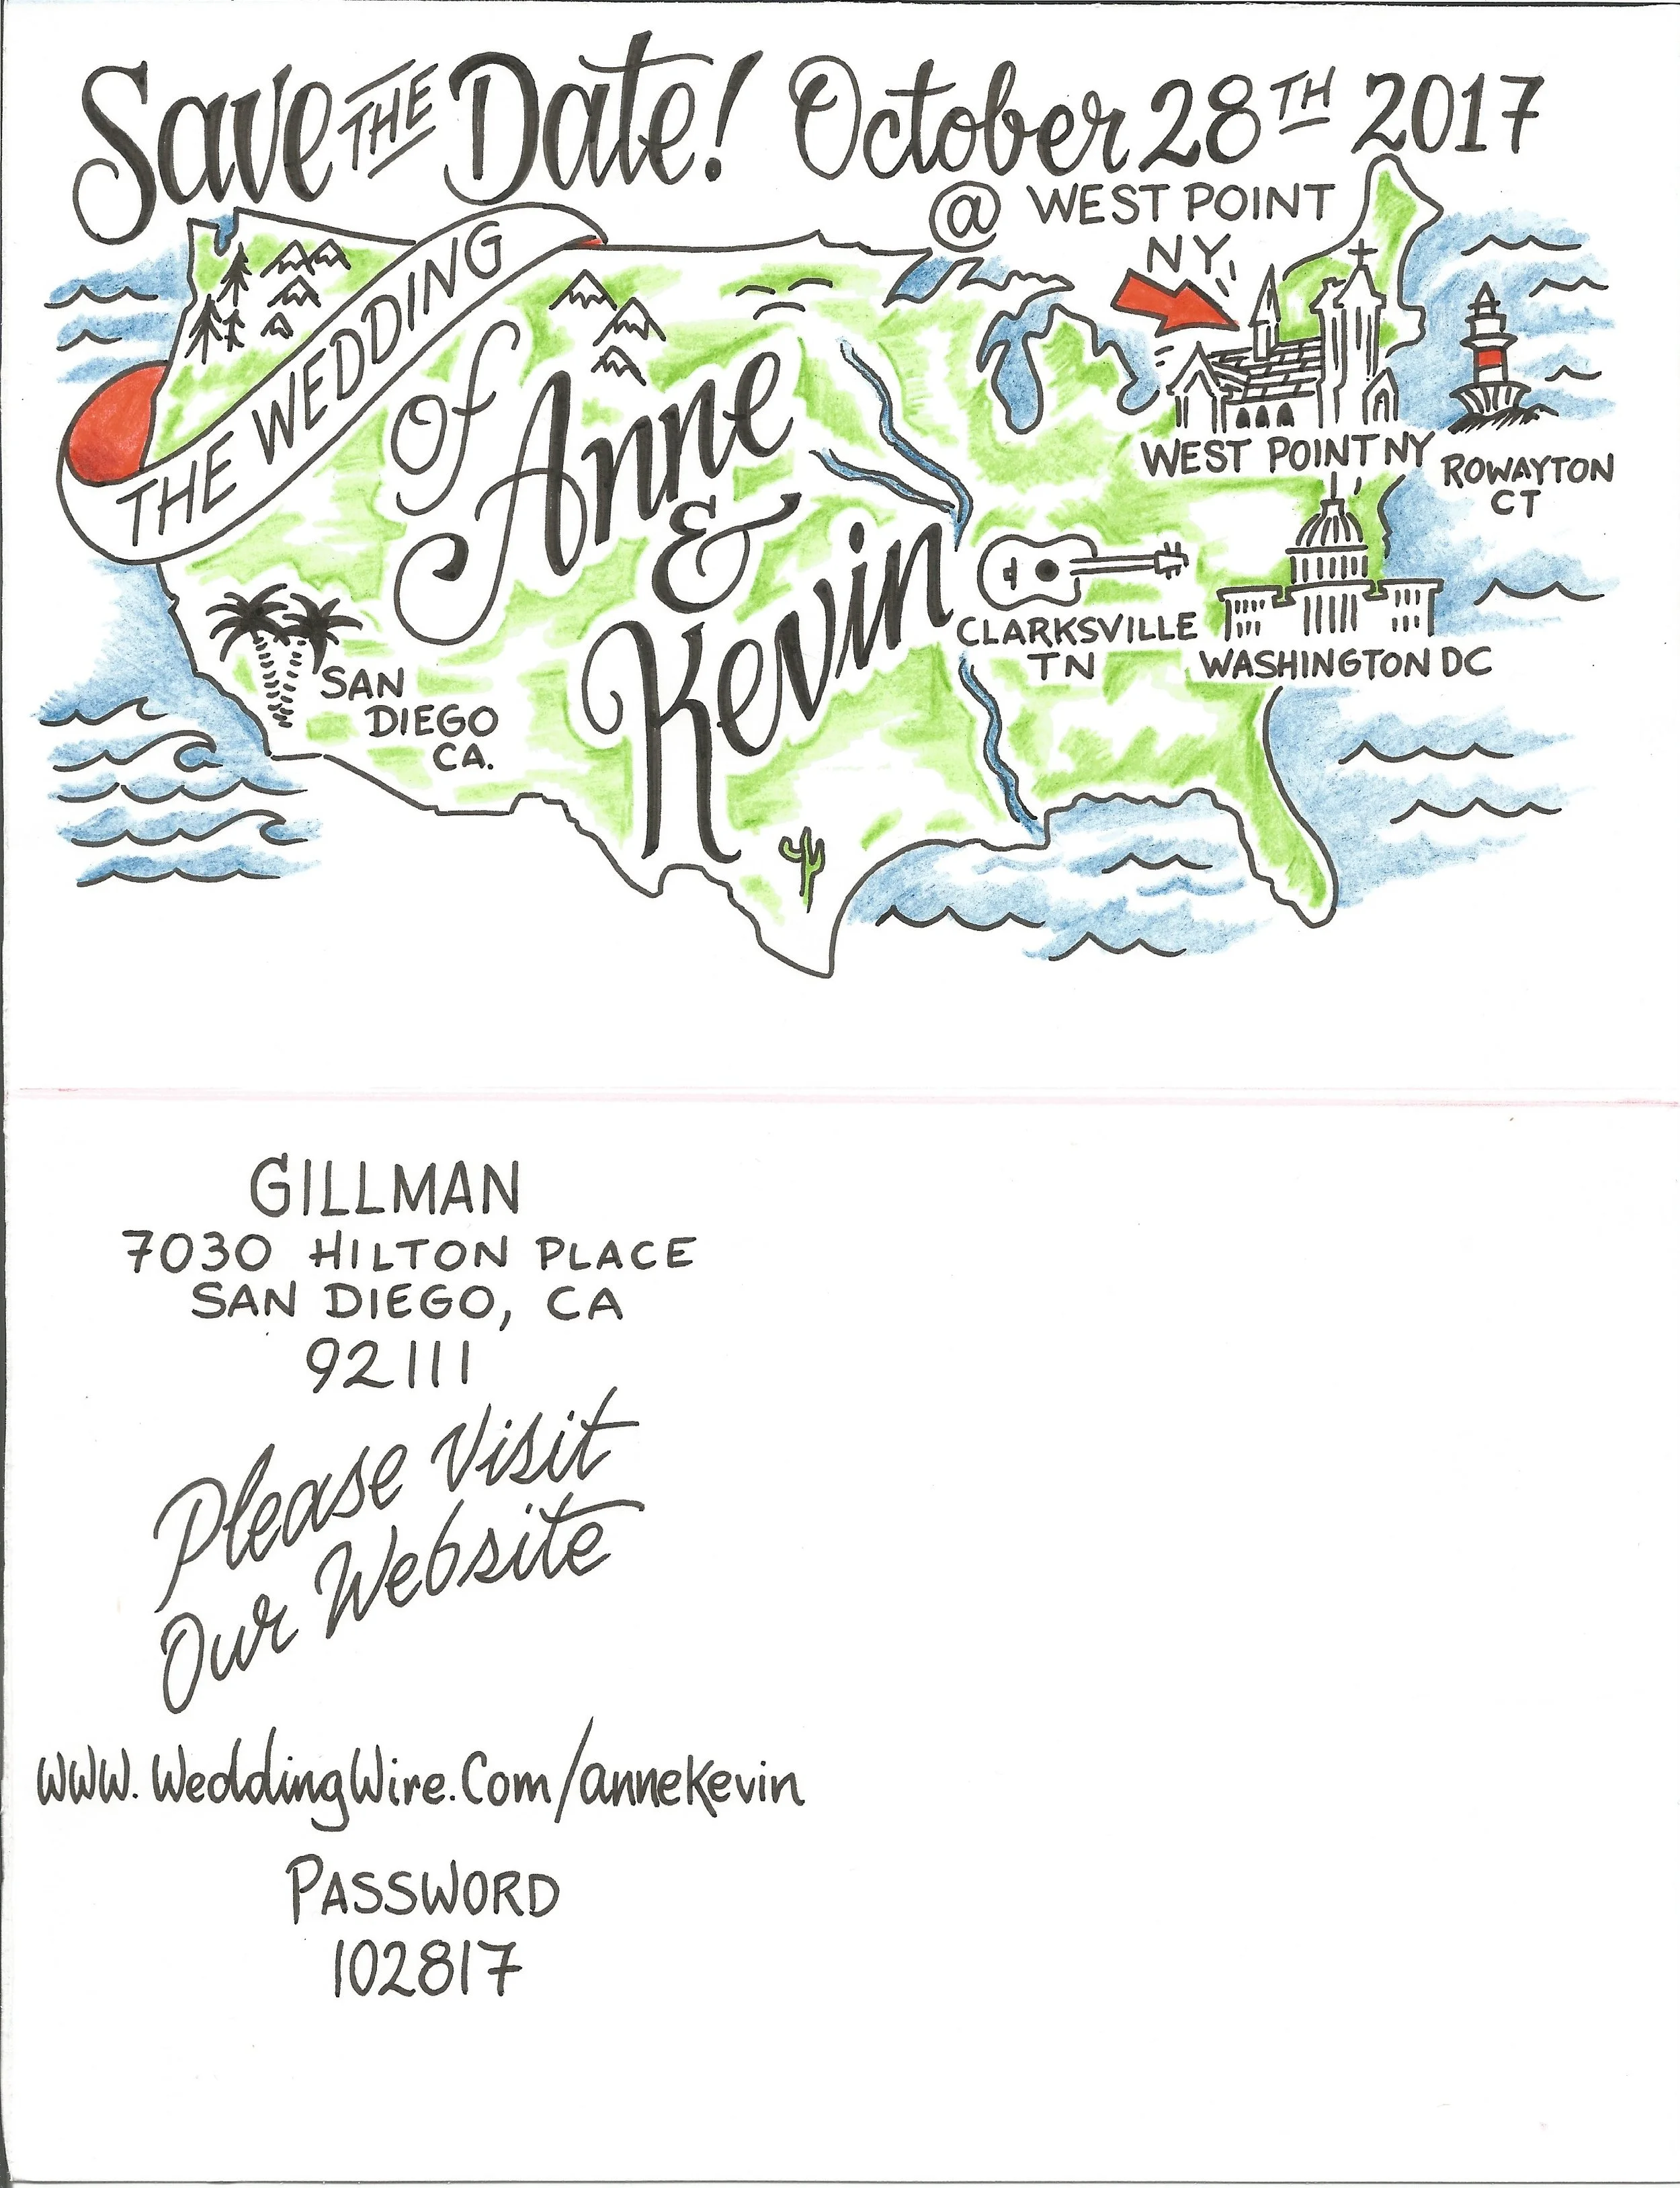 Save THE Date! October 28TH 2017
@ WEST POINT
NY
THE WEDDING
of
Anne
&
Kevin
WEST POINT NY
ROWAYTON
CT
CLARKSVILLE
TN
WASHINGTON DC
SAN
DIEGO
CA.
GILLMAN
7030 HILTON PLACE
SAN DIEGO, CA
92111
Please Visit
Our Website
WWW.WeddingWire.Com/annekevin
PASSWORD
102817